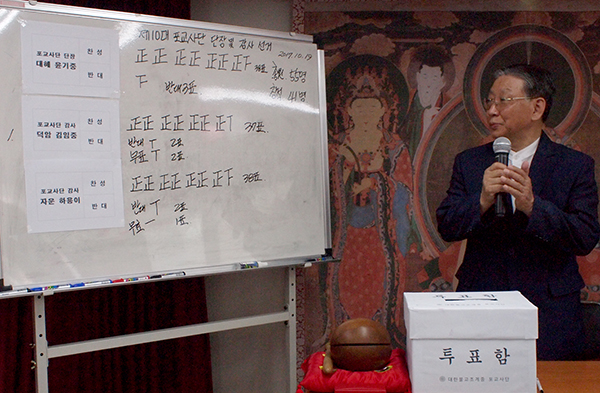 제10대 포교사단 단장 및 감사 선거
2017.10.19
포교사단 단장
대혜 윤기중
찬성
반대
正正 正正 正正下 38표
丅 반대 3표
총원 55명
참석 41명
포교사단 감사
덕암 김힘중
찬성
반대
正正 正正 正丅 37표
반대 丅 2표
무표 丅 2표
포교사단 감사
자운 하용이
찬성
반대
正正 正正 正正下 38표
반대 丅 2표
무표 一 1표
투표함
투표함
대한불교조계종 포교사단